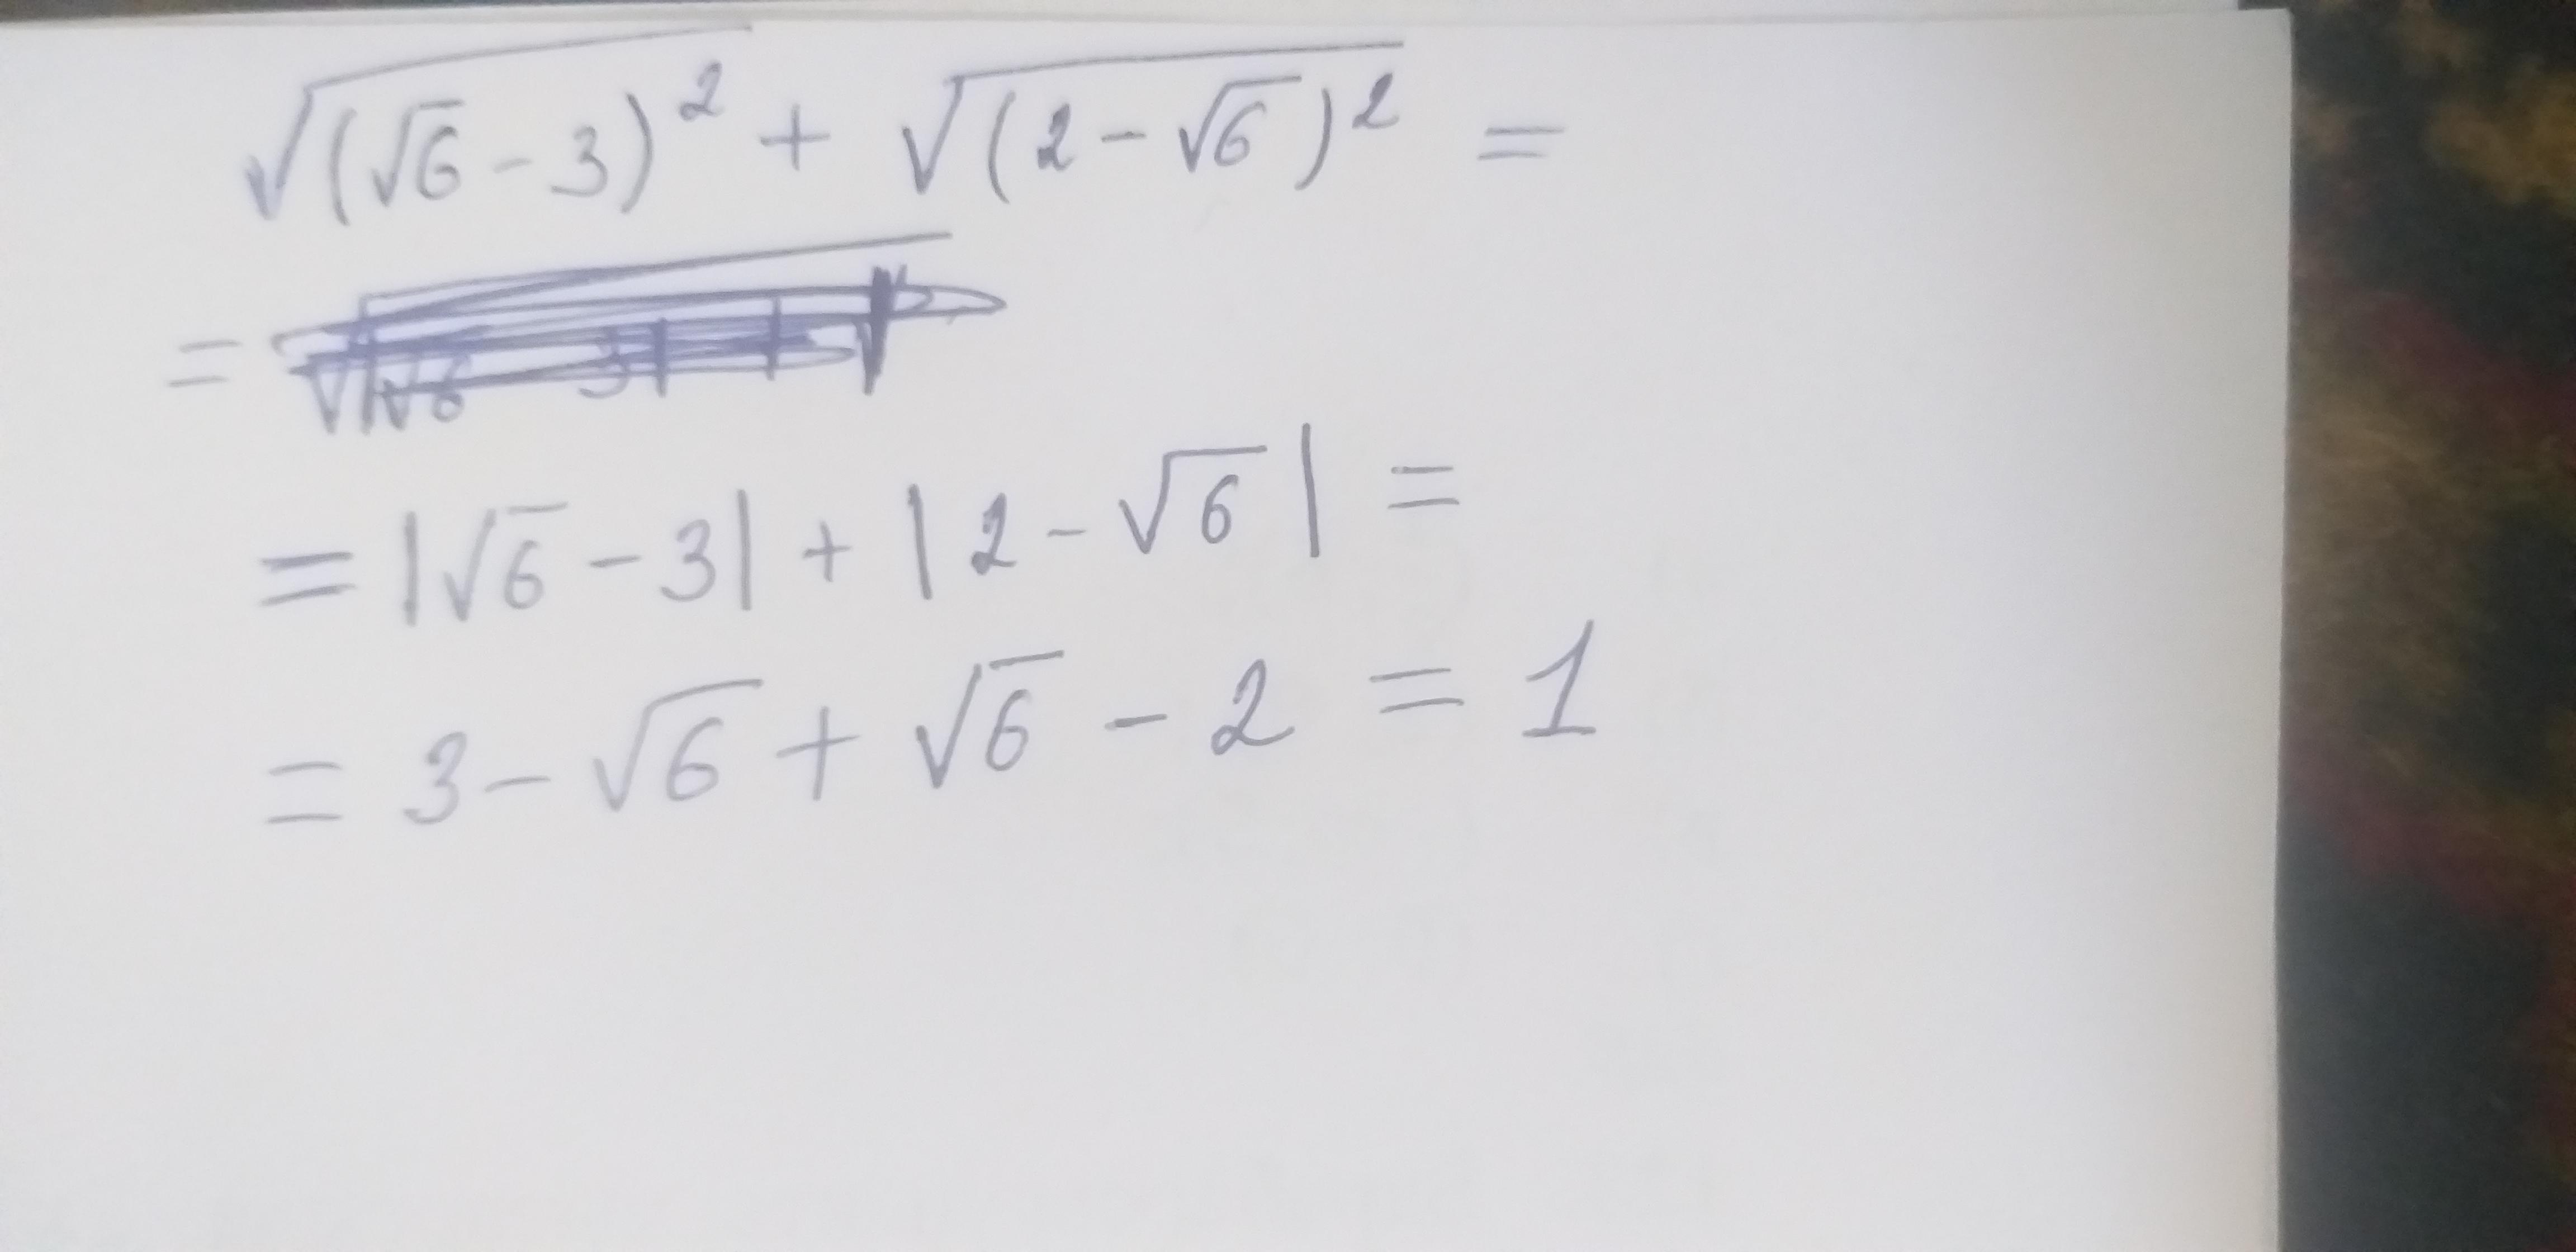 √(√6 - 3)² + √(2 - √6)² =
=
= |√6 - 3| + |2 - √6| =
= 3 - √6 + √6 - 2 = 1